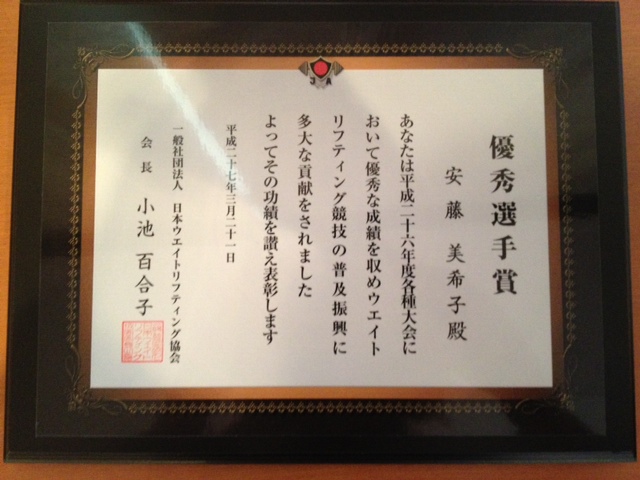 優秀選手賞
安藤 美希子殿
あなたは平成二十六年度各種大会に
おいて優秀な成績を収めウエイト
リフティング競技の普及振興に
多大な貢献をされました
よってその功績を讃え表彰します
平成二十七年三月二十一日
一般社団法人 日本ウエイトリフティング協会
会長 小池 百合子